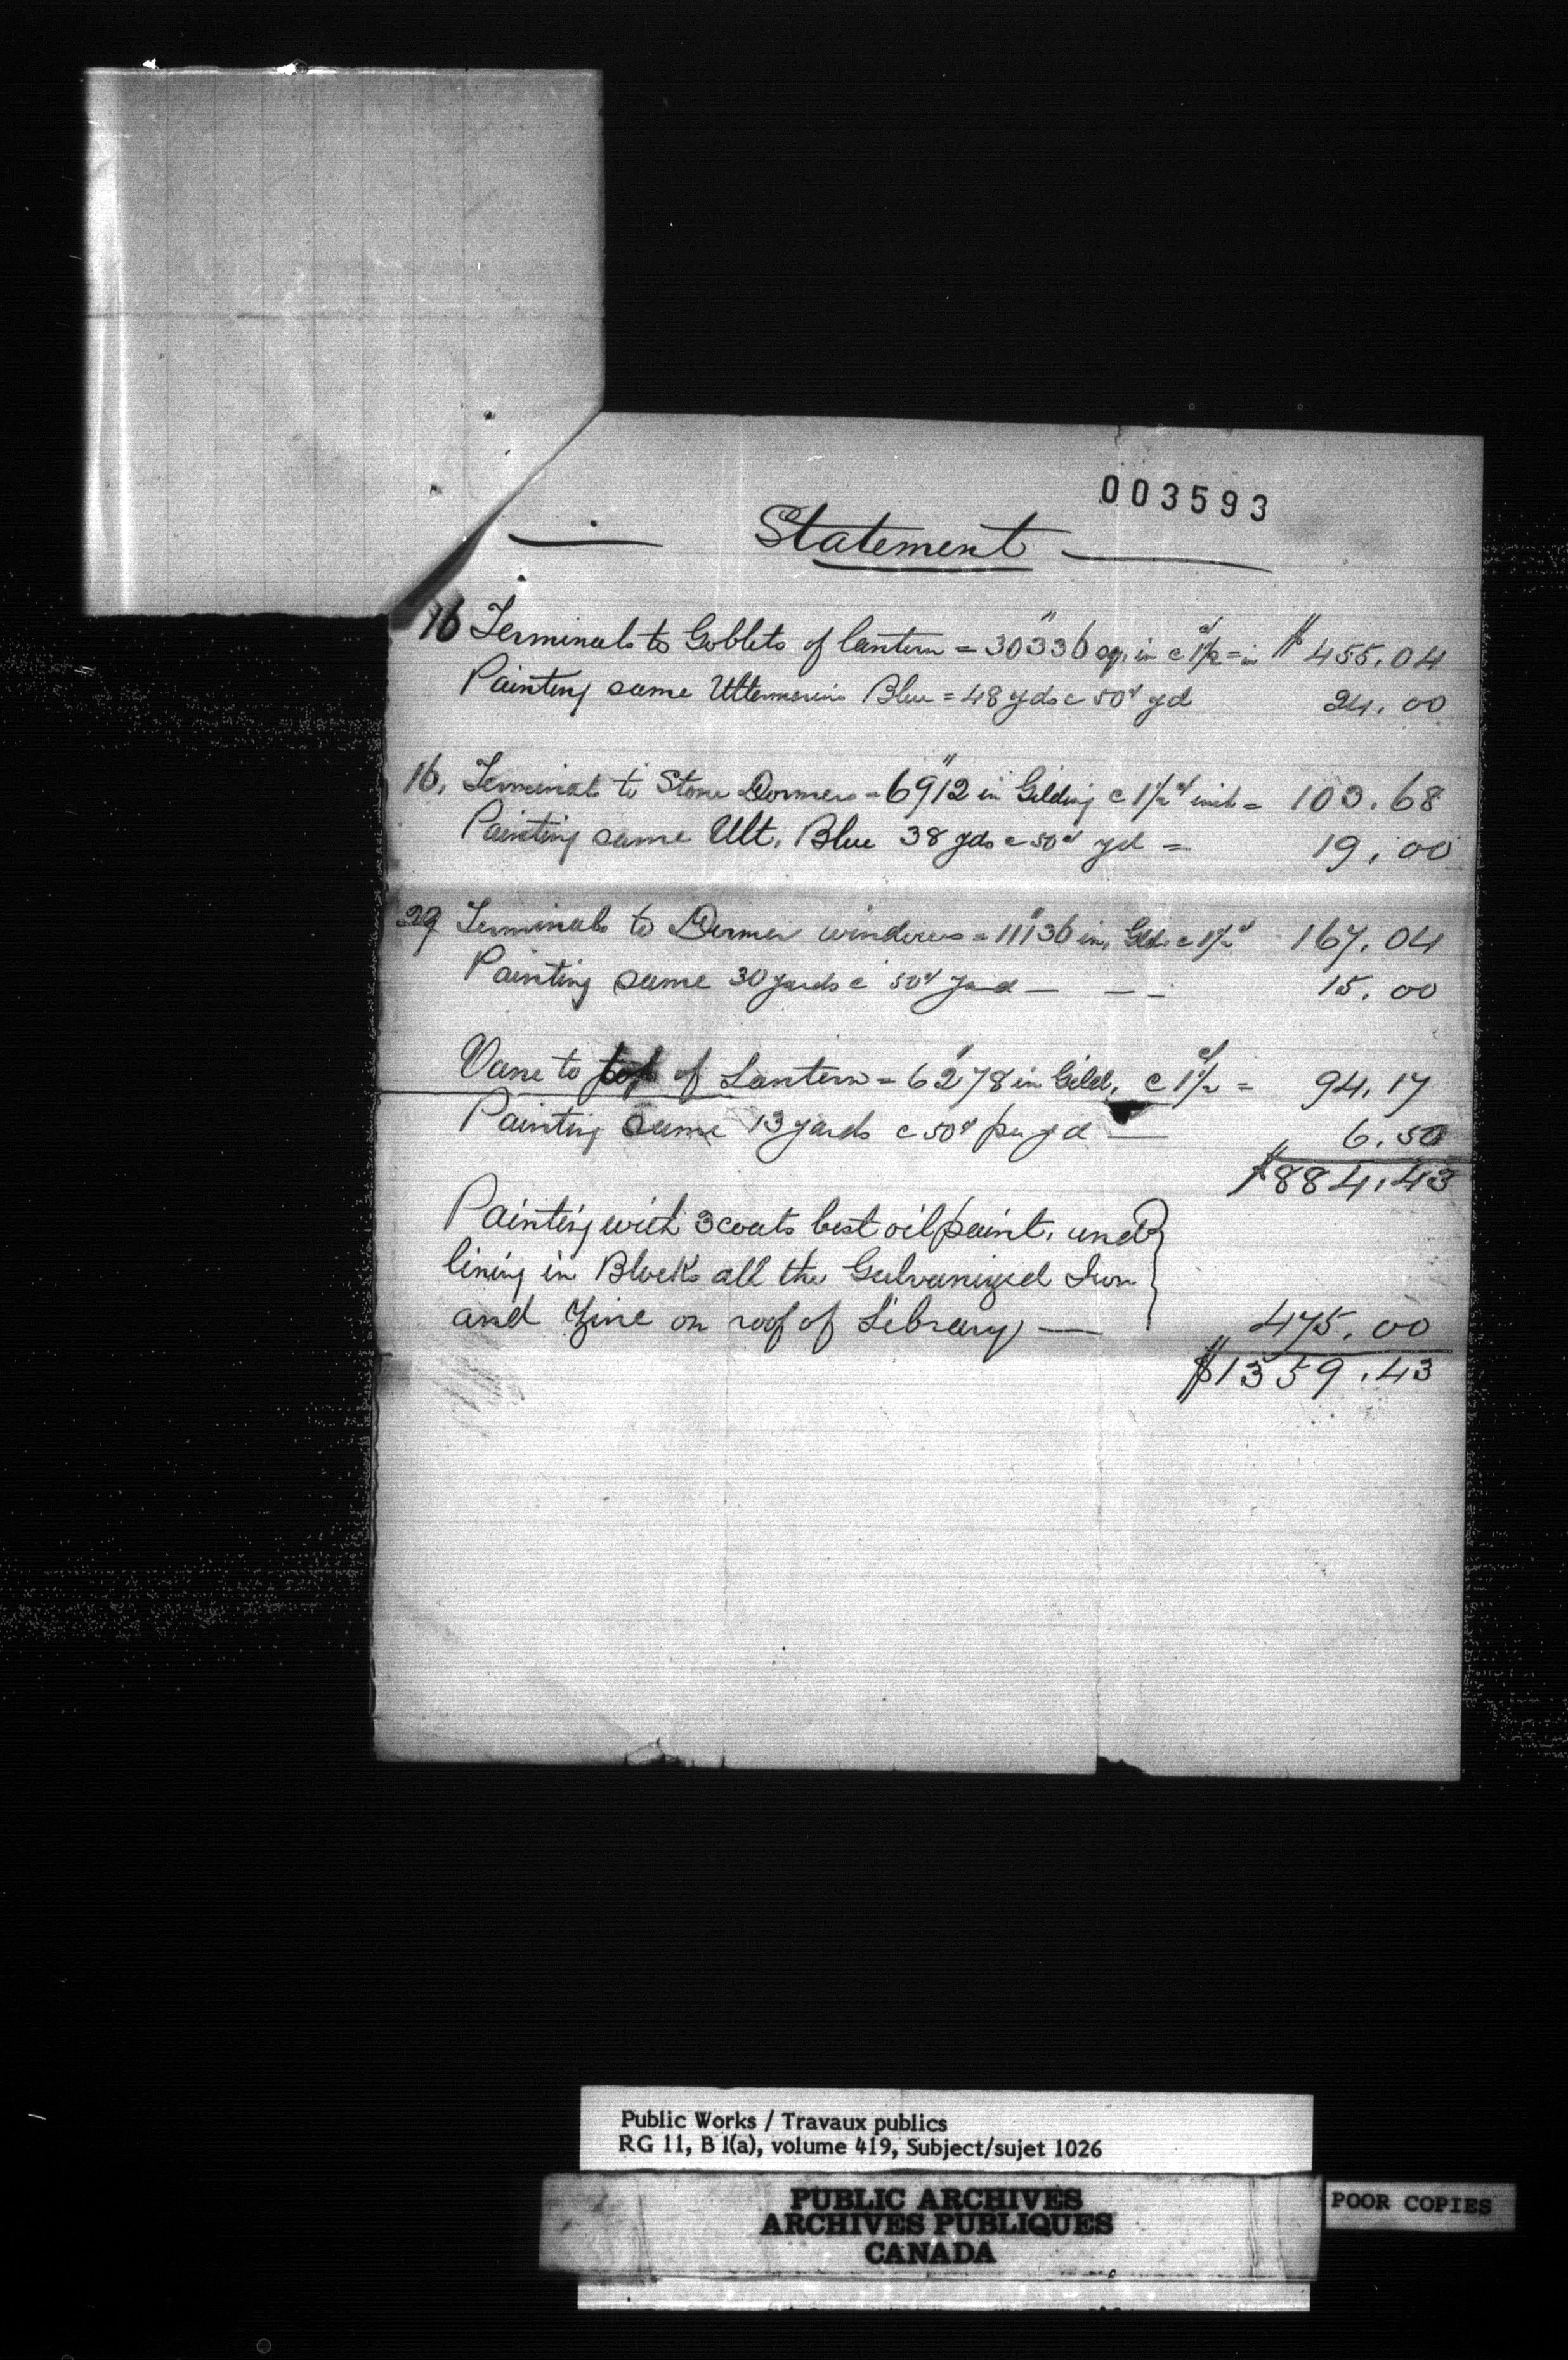 003593
Statement
16 Terminals to Goblets of lantern = 30"336 sq. in c 1½ cts = in $455.04
Painting same Ultermarine Blue = 48 yds c 50cts yd 24.00
16. Terminals to Stone Dormers = 6"912 in Gilding c 1½cts inch = 103.68
Painting same Ult. Blue 38 yds c 50cts yd = 19.00
29 Terminals to Dormer windows = 11"136 in. Gild. c 1½cts 167.04
Painting same 30 yards c 50cts yard — — — 15.00
Vane to top of Lantern = 6"278 in Gild. c 1½cts = 94.17
Painting same 13 yards c 50cts per yd — 6.50
$884.43
Painting with 3 coats best oil paint, and
lining in Blocks all the Galvanized Iron
and Zinc on roof of Library — 475.00
$1359.43
Public Works / Travaux publics
RG 11, B 1(a), volume 419, Subject/sujet 1026
PUBLIC ARCHIVES
ARCHIVES PUBLIQUES
CANADA
POOR COPIES